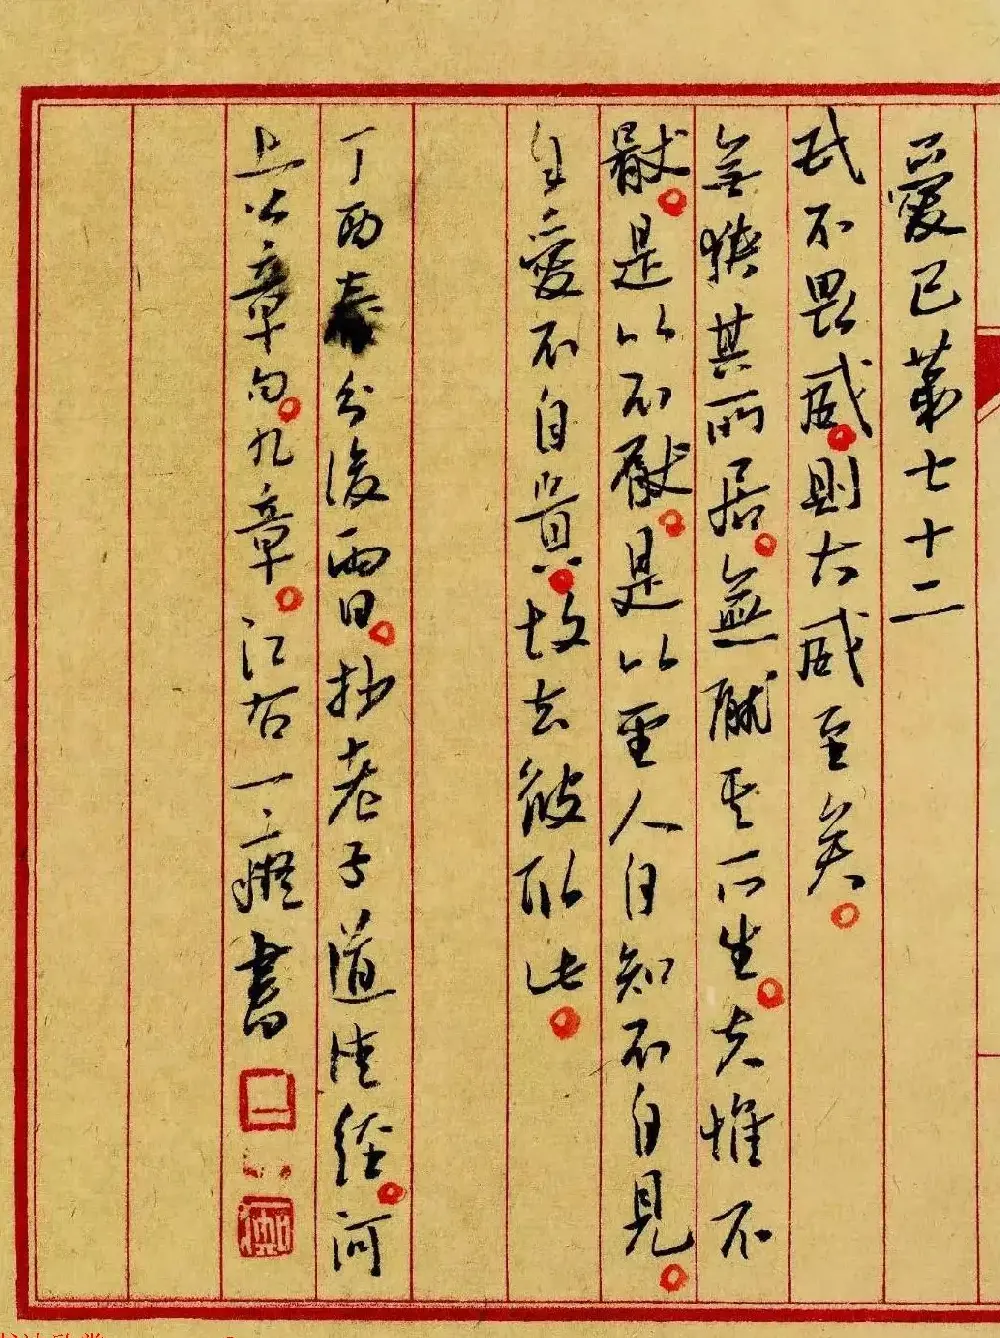 愛已第七十二
民不畏威。則大威至矣。
無狹其所居。無厭其所生。夫惟不
厭。是以不厭。是以聖人自知不自見。
自愛不自貴。故去彼取此。
丁酉春分後兩日。抄老子道德經。河
上公章句。九章。江右一二癡書